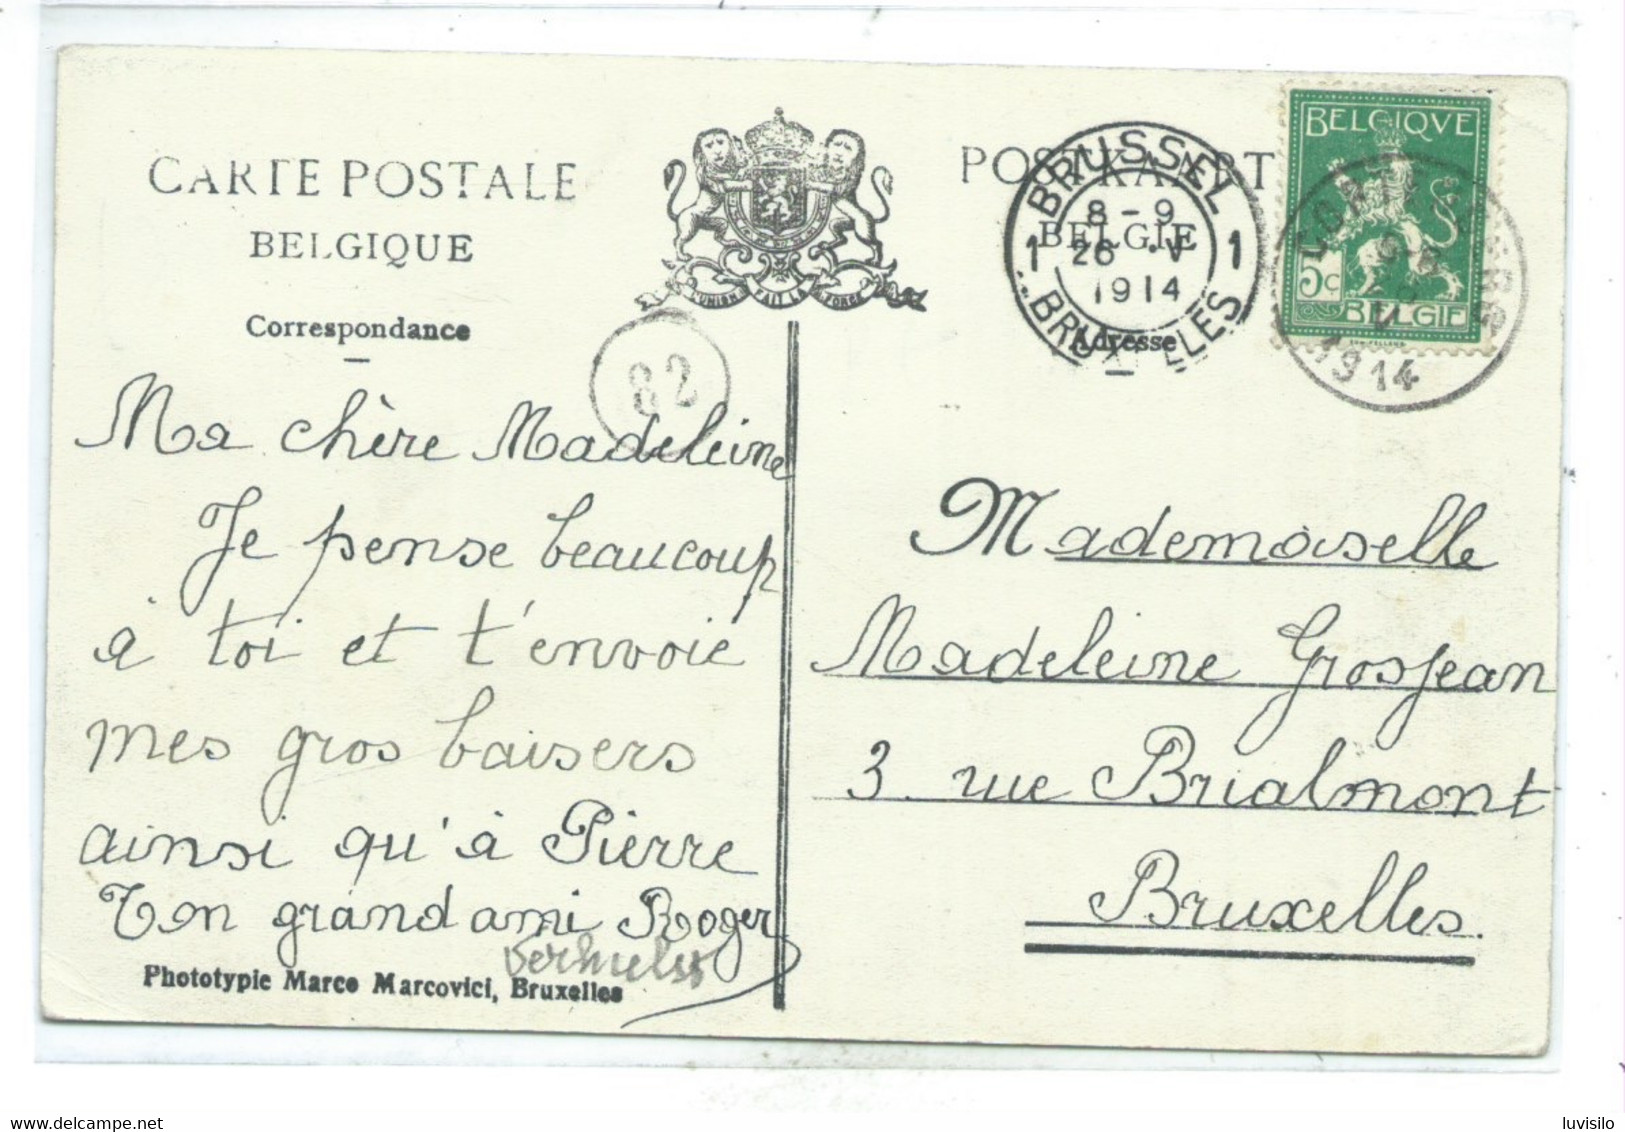 CARTE POSTALE
BELGIQUE
Correspondance
L'UNION FAIT LA FORCE
POSTKAART
BELGIE
Adresse
BRUSSEL
8-9
1 26 V 1
1914
BRUXELLES
BELGIQVE
5c
BELGIE
1914
82
Ma chère Madeleine
Je pense beaucoup
à toi et t'envoie
mes gros baisers
ainsi qu'à Pierre
Ton grand ami Roger
Phototypie Marco Marcovici, Bruxelles
Mademoiselle
Madeleine Grosjean
3 rue Brialmont
Bruxelles.
luvisilo